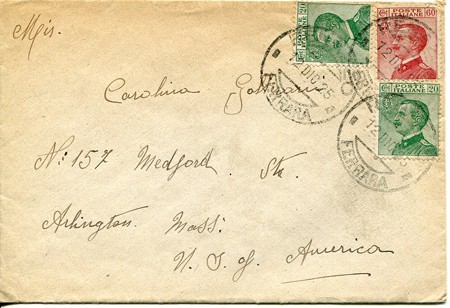 Mis.
Carolina
No: 157 Medford. Str.
Arlington. Mass:
U. S. of America
POSTE ITALIANE 20
POSTE ITALIANE 60
POSTE ITALIANE 20
12 DIC 25
FERRARA
FERRARA